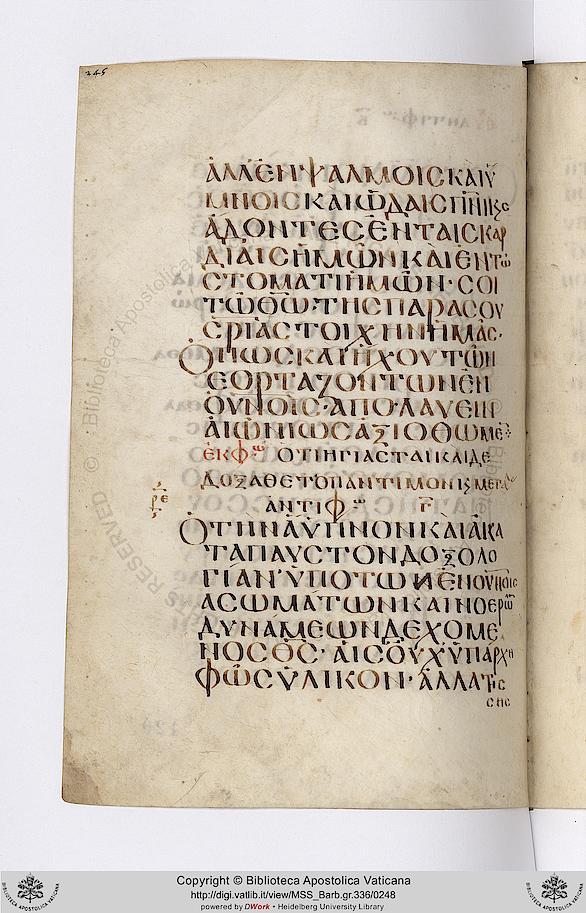 245
ἈΛΛ'ἘΝΨΑΛΜΟΙΣΚΑΙΥ
ΜΝΟΙΣΚΑΙὨΔΑΙΣΠΝΙΚΣ
ἈΔΟΝΤΕΣἘΝΤΑΙΣΚΑΡ
ΔΙΑΙΣἩΜΩΝΚΑΙΕΝΤΩ
ΣΤΟΜΑΤΙἩΜΩΝ·ΣΟΙ
ΤΩΘΩ·ΤΗΣΠΑΡΑΣΟΥ
ΣΡΙΑΣΤΟΙΧΗΝΗΜΑΣ·
ὉΠΩΣΚΑΙΗΧΟΥΤΩΝ
ΕΟΡΤΑΖΟΝΤΩΝΕΝ
ΟΥΝΟΙΣ·ἈΠΟΛΑΥΕΙΝ
ΑΙΩΝΙΩΣΑΞΙΟΘΩΜΕ
ἘΚΦ ὍΤΙΗΓΙΑΣΤΑΙΚΑΙΔΕ
ΔΟΞΑΘΕΤΟΠΑΝΤΙΜΟΝΚ
ἈΝΤΙΦ Γ
ὉΤΗΝΑΫΠΝΟΝΚΑΙΑΚΑ
ΤΑΠΑΥΣΤΟΝΔΟΞΟΛΟ
ΓΙΑΝ'ΥΠΟΤΩΝΕΝΟΥΝΟΙΣ
ΑΣΩΜΑΤΩΝΚΑΙΝΟΕΡΩ
ΔΥΝΑΜΕΩΝΔΕΧΟΜΕ
ΝΟΣΘΣ·ἉΙΣΟΥΧ'ΥΠΑΡΧΗ
ΦΩΣΥΛΙΚΟΝ·ἈΛΛΑΤΗΣ
ΣΗΣ
Copyright © Biblioteca Apostolica Vaticana
http://digi.vatlib.it/view/MSS_Barb.gr.336/0248
powered by DWork • Heidelberg University Library